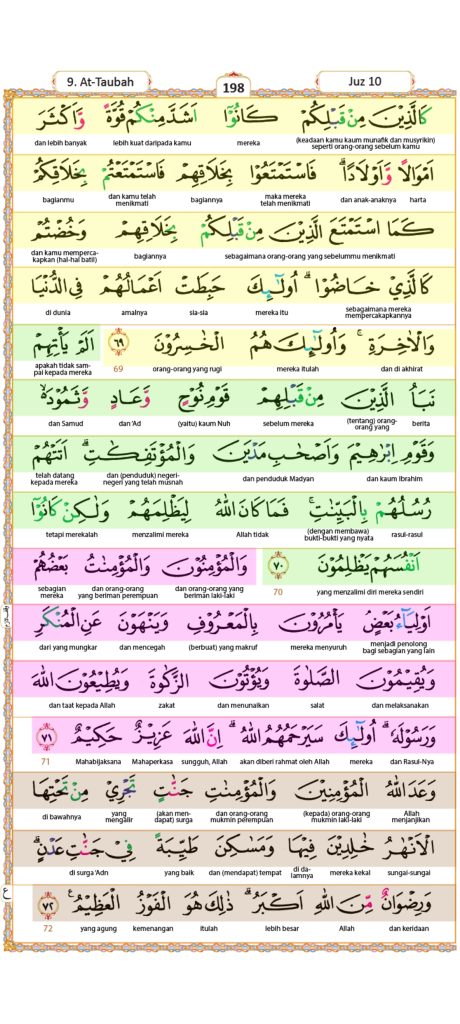 9. At-Taubah
198
Juz 10
كَالَّذِيْنَ مِنْ قَبْلِكُمْ كَانُوْٓا اَشَدَّ مِنْكُمْ قُوَّةً وَّاَكْثَرَ
(keadaan kamu kaum munafik dan musyrikin) seperti orang-orang sebelum kamu mereka lebih kuat daripada kamu dan lebih banyak
اَمْوَالًا وَّاَوْلَادًاۗ فَاسْتَمْتَعُوْا بِخَلَاقِهِمْ فَاسْتَمْتَعْتُمْ بِخَلَاقِكُمْ
harta dan anak-anaknya maka mereka telah menikmati bagiannya dan kamu telah menikmati bagianmu
كَمَا اسْتَمْتَعَ الَّذِيْنَ مِنْ قَبْلِكُمْ بِخَلَاقِهِمْ وَخُضْتُمْ
sebagaimana orang-orang yang sebelummu menikmati bagiannya dan kamu mempercakapkan (hal-hal batil)
كَالَّذِيْ خَاضُوْاۗ اُولٰۤىِٕكَ حَبِطَتْ اَعْمَالُهُمْ فِى الدُّنْيَا
sebagaimana mereka mempercakapkannya mereka itu sia-sia amalnya di dunia
وَالْاٰخِرَةِۚ وَاُولٰۤىِٕكَ هُمُ الْخٰسِرُوْنَ ٦٩ اَلَمْ يَأْتِهِمْ
dan di akhirat mereka itulah orang-orang yang rugi 69 apakah tidak sampai kepada mereka
نَبَاُ الَّذِيْنَ مِنْ قَبْلِهِمْ قَوْمِ نُوْحٍ وَّعَادٍ وَّثَمُوْدَ ەۙ
berita (tentang) orang-orang yang sebelum mereka (yaitu) kaum Nuh dan 'Ad dan Samud
وَقَوْمِ اِبْرٰهِيْمَ وَاَصْحٰبِ مَدْيَنَ وَالْمُؤْتَفِكٰتِۗ اَتَتْهُمْ
dan kaum Ibrahim dan penduduk Madyan dan (penduduk) negeri-negeri yang telah musnah telah datang kepada mereka
رُسُلُهُمْ بِالْبَيِّنٰتِۚ فَمَا كَانَ اللّٰهُ لِيَظْلِمَهُمْ وَلٰكِنْ كَانُوْٓا
rasul-rasul (dengan membawa) bukti-bukti yang nyata Allah tidak menzalimi mereka tetapi merekalah
اَنْفُسَهُمْ يَظْلِمُوْنَ ٧٠ وَالْمُؤْمِنُوْنَ وَالْمُؤْمِنٰتُ بَعْضُهُمْ
yang menzalimi diri mereka sendiri 70 dan orang-orang yang beriman laki-laki dan orang-orang yang beriman perempuan sebagian mereka
اَوْلِيَاۤءُ بَعْضٍۘ يَأْمُرُوْنَ بِالْمَعْرُوْفِ وَيَنْهَوْنَ عَنِ الْمُنْكَرِ
menjadi penolong bagi sebagian yang lain mereka menyuruh (berbuat) yang makruf dan mencegah dari yang mungkar
وَيُقِيْمُوْنَ الصَّلٰوةَ وَيُؤْتُوْنَ الزَّكٰوةَ وَيُطِيْعُوْنَ اللّٰهَ
dan melaksanakan salat dan menunaikan zakat dan taat kepada Allah
وَرَسُوْلَهٗۗ اُولٰۤىِٕكَ سَيَرْحَمُهُمُ اللّٰهُۗ اِنَّ اللّٰهَ عَزِيْزٌ حَكِيْمٌ ٧١
dan Rasul-Nya mereka akan diberi rahmat oleh Allah sungguh, Allah Mahaperkasa Mahabijaksana 71
وَعَدَ اللّٰهُ الْمُؤْمِنِيْنَ وَالْمُؤْمِنٰتِ جَنّٰتٍ تَجْرِيْ مِنْ تَحْتِهَا
Allah menjanjikan (kepada) orang-orang mukmin laki-laki dan orang-orang mukmin perempuan (akan mendapat) surga yang mengalir di bawahnya
الْاَنْهٰرُ خٰلِدِيْنَ فِيْهَا وَمَسٰكِنَ طَيِّبَةً فِيْ جَنّٰتِ عَدْنٍۗ
sungai-sungai mereka kekal di dalamnya dan (mendapat) tempat yang baik di surga 'Adn
وَرِضْوَانٌ مِّنَ اللّٰهِ اَكْبَرُۗ ذٰلِكَ هُوَ الْفَوْزُ الْعَظِيْمُ ٧٢
dan keridaan Allah lebih besar itulah kemenangan yang agung 72
ع